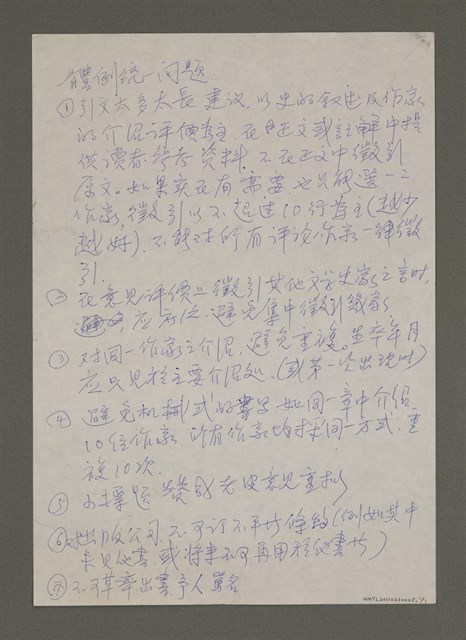 體例統一问题
①引文太多太長 建议，以史的叙述及作家
的介绍评價為主，在正文或註解中提
供讀者參考資料，不在正文中徵引
原文。如果实在有需要，也只能選一二
作家，徵引以不超过10行為主(越少
越好)，不能对所有评论作家一律徵
引.
②在意見评價上徵引其他文学史家之言时，
应广泛，避免集中徵引幾家
③对同一作家之介绍，避免重複。生卒年月
应只見於主要介绍处，(或第一次出现时)
④避免机械式的 如同一章中介绍
10位作家，所有作家均採同一方式，重
複10次.
⑤小標題 贊成 意見重拟
⑥对出版公司，不可订不平等條約(例如其中
未見他書，或将来不可再用於他書等)
⑦不可草率出書，予人罵名